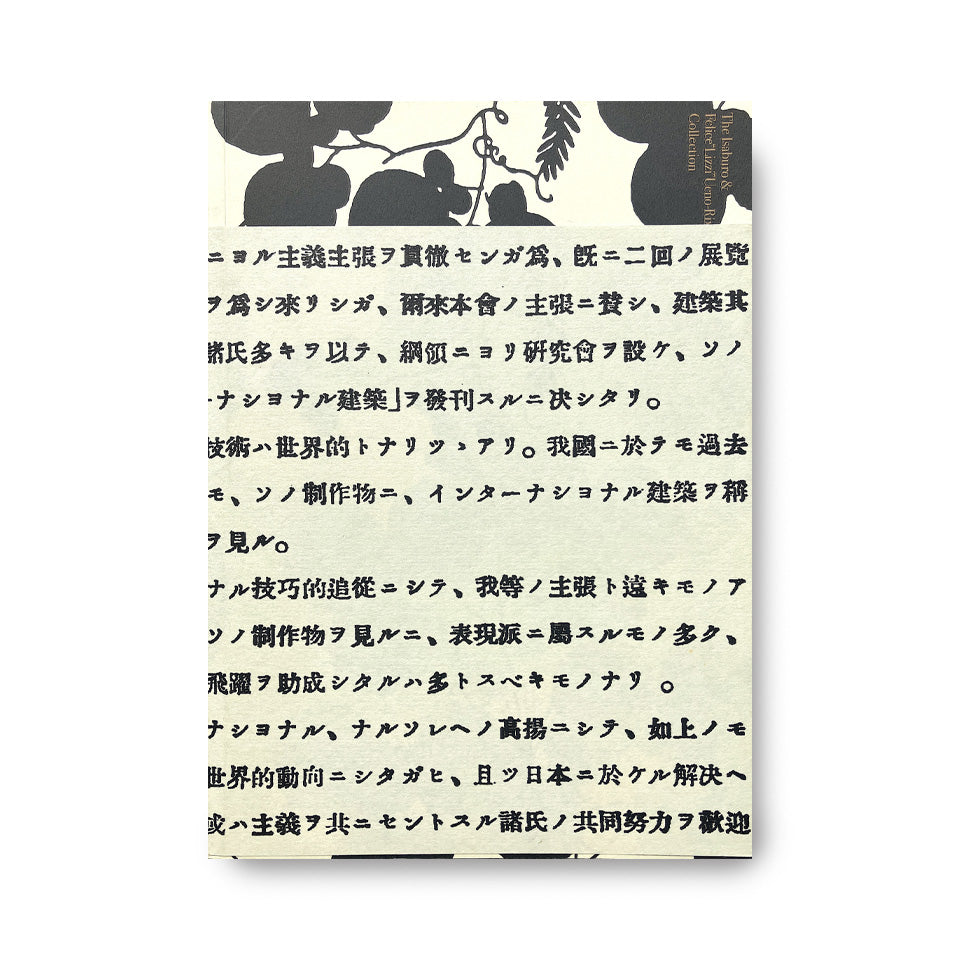 The Isaburo &
Felice "Lizzi" Ueno-Rix
Collection
ニヨル主義主張ヲ貫徹センガ爲、旣ニ二回ノ展覽
ヲ爲シ來リシガ、爾來本會ノ主張ニ賛シ、建築其
諸氏多キヲ以テ、綱領ニヨリ硏究會ヲ設ケ、ソノ
ーナシヨナル建築」ヲ發刊スルニ決シタリ。
技術ハ世界的トナリツヽアリ。我國ニ於テモ過去
モ、ソノ制作物ニ、インターナシヨナル建築ヲ稱
ヲ見ル。
ナル技巧的追從ニシテ、我等ノ主張ト遠キモノア
ソノ制作物ヲ見ルニ、表現派ニ屬スルモノ多ク、
飛躍ヲ助成シタルハ多トスベキモノナリ。
ナシヨナル、ナルソレヘノ高揚ニシテ、如上ノモ
世界的動向ニシタガヒ、且ツ日本ニ於ケル解決ヘ
或ハ主義ヲ共ニセントスル諸氏ノ共同努力ヲ歡迎